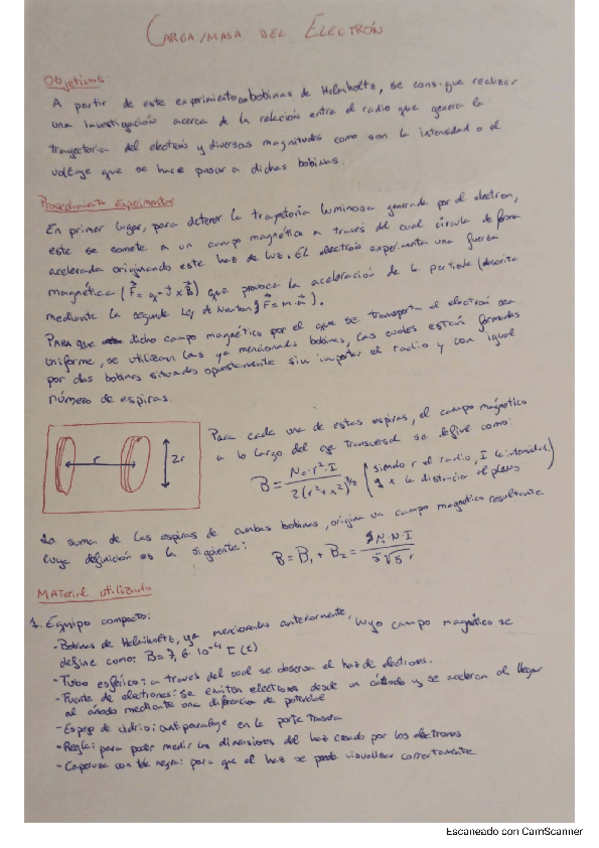 CARGA/MASA DEL ELECTRÓN
Objetivos:
A partir de este experimiento con bobinas de Helmholtz, se consigue realizar
una investigación acerca de la relación entre el radio que genera la
trayectoria del electrón y diversas magnitudes como son la intensidad o el
voltaje que se hace pasar a dichas bobinas.
Procedimiento Experimental
En primer lugar, para detener la trayetoria luminosa generada por el electrón,
este se somete a un campo magnético a través del cual circula de forma
acelerada originando este haz de luz. El electrón experimenta una fuerza
magnética (F = q·v x B) que provoca la aceleración de la partícula (descrita
mediante la segunda Ley de Newton F = m·a).
PARA que dicho campo magnético por el que se transporta el electrón sea
uniforme, se utilizan las ya mencionadas bobinas, las cuales están formadas
por dos bobinas situadas opuestamente sin importar el radio y con igual
número de espiras.
r
2r
Para cada una de estas espiras, el campo magnético
a lo largo del eje transversal se define como:
B = N₀·r²·I / 2(r²+x²)^3/2 (siendo r el radio, I la intensidad
y x la distancia al plano)
La suma de las espiras de ambas bobinas, origina un campo magnético resultante
cuya definición es la siguiente:
B = B₁ + B₂ = N·N·I / 5√5 r
MATERIAL utilizado
1. Equipo compacto:
- Bobinas de Helmholtz, ya mencionadas anteriormente, cuyo campo magnético se
define como: B = 7,6·10⁻⁴ I (I)
- Tubo esférico: a través del cual se observa el haz de electrones.
- Fuente de electrones: Se emiten electrones desde un cátodo y se aceleran al llegar
al ánodo mediante una diferencia de potencial
- Espejo de vidrio: antiparalaje en la parte trasera
- Regla: para poder medir las dimensiones del haz creado por los electrones
- Caperuza con tela negra: para que el haz se pueda visualizar correctamente
Escaneado con CamScanner